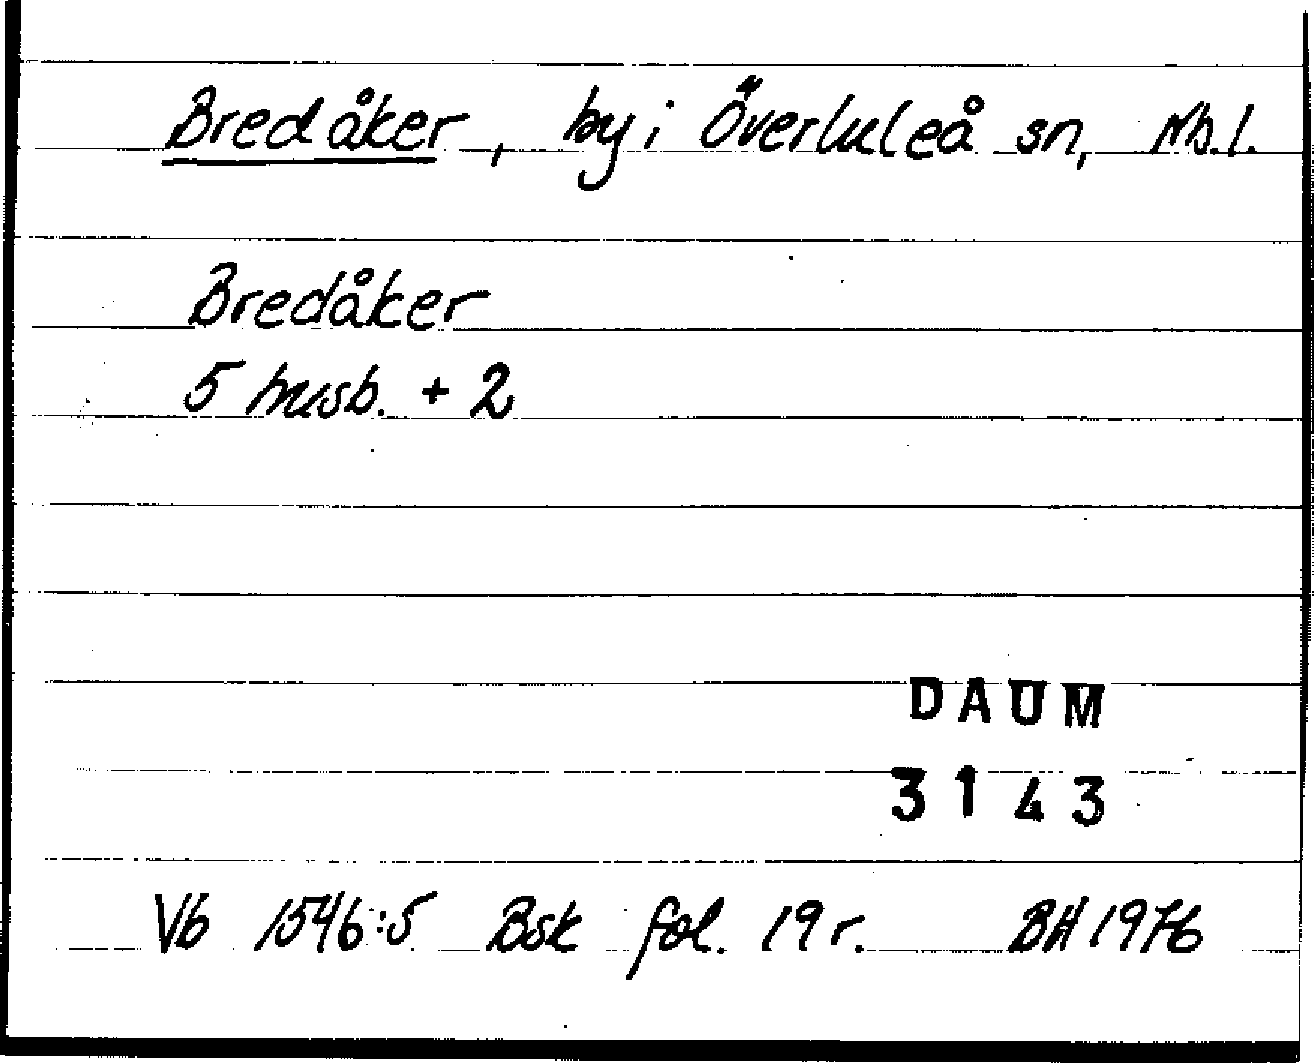 Bredåker, by i Överluleå sn, Nb.l.
Bredåker
5 husb. + 2
DAUM
3143
Vb 1546:5 Bsk fol. 19r. BH 1976